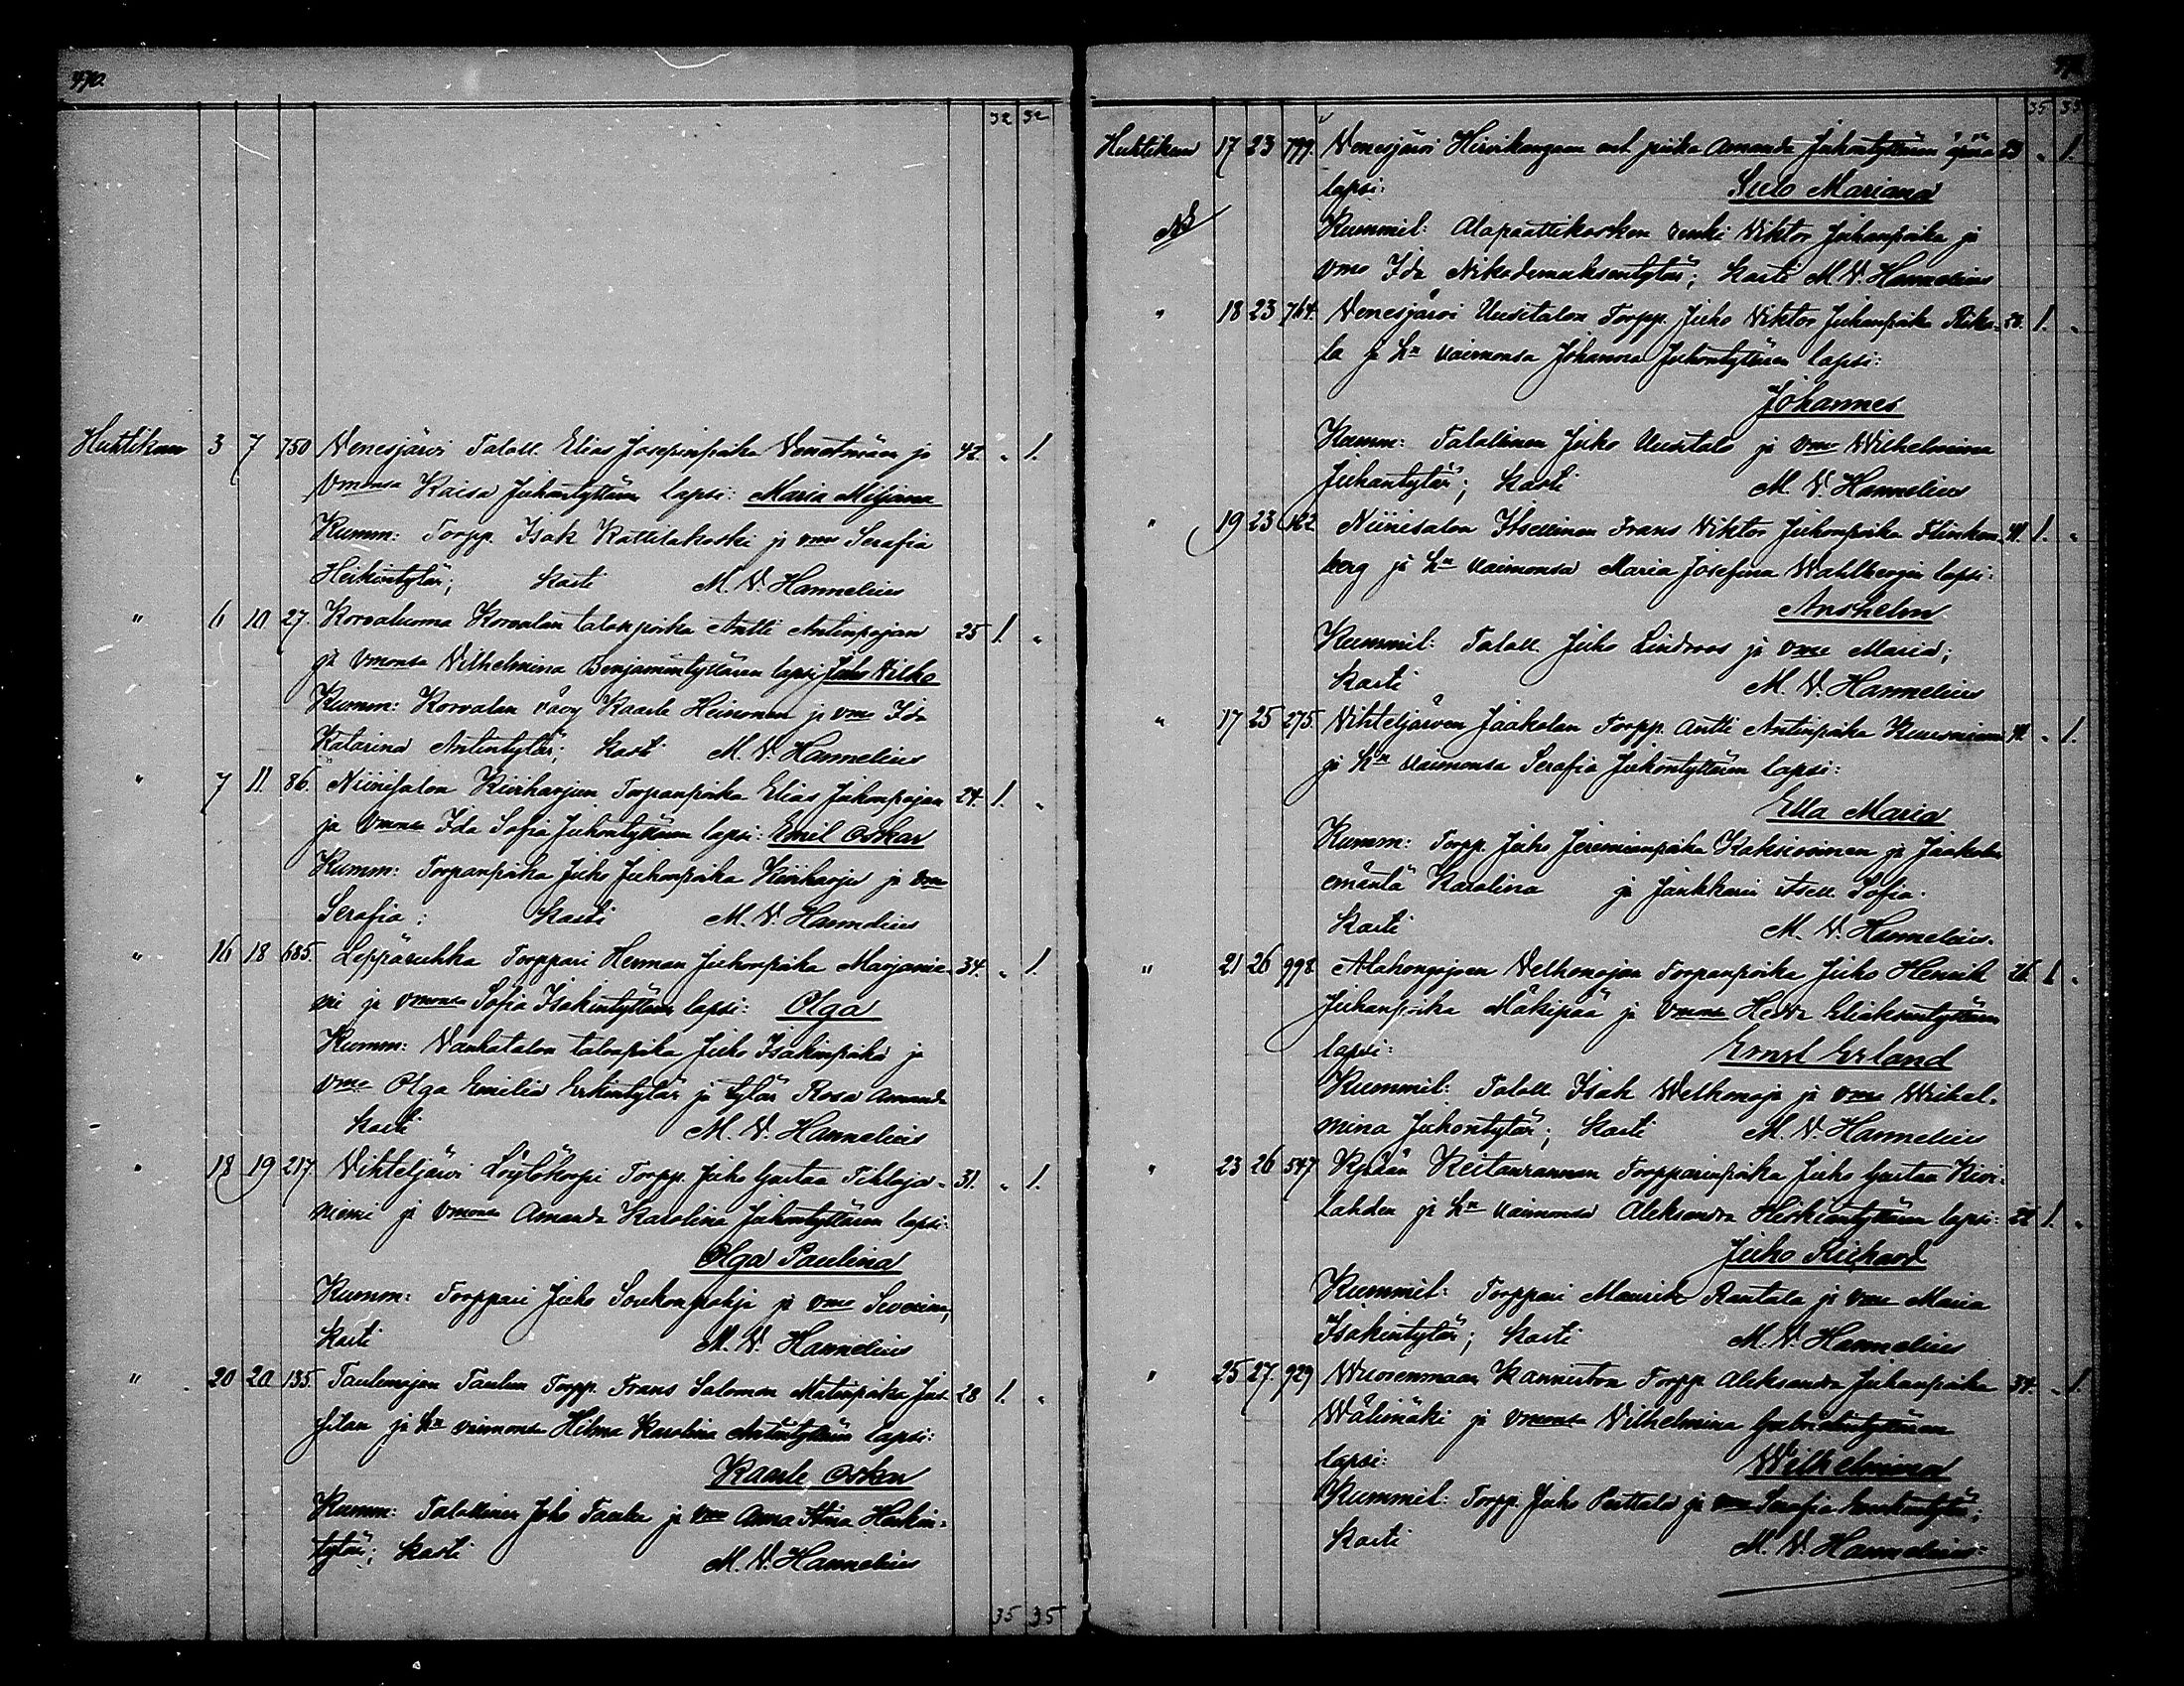 470.
32 32
Huhtikuu 3 7 750 Venesjärvi Taloll. Elias Josepinpoika ja 42. „ 1.
Vmonsa Kaisa Juhontyttären lapsi: Maria Miljana
Kumm: Torpp. Isak Kattilakoski ja vmo Serafia
Heikintytär; Kasti M. V. Hannelius
" 6 10 27. Korvaluoma Korvalan talonpoika Antti Antinpojan 25 1. „
ja Vmonsa Vilhelmina Benjamintyttären lapsi Juho Vilho
Kumm: Korvalan vävy Kaarle Heinonen ja vmo Ida
Katarina Antintytär; Kasti M. V. Hannelius
" 7 11. 86. Niinisalon Kiviharjun Torpanpoika Elias Juhonpojan 24. 1. „
ja Vmonsa Ida Sofia Juhontyttären lapsi: Emil Oskar
Kumm: Torpanpoika Juho Juhonpoika Kiviharju ja vmo
Serafia; Kasti M. V. Hannelius
" 16 18 685. Leppäruhka Torppari Herman Juhonpoika Marjanie- 34. „ 1.
mi ja vmonsa Sofia Isakintyttären lapsi: Olga
Kumm: Vanhatalon talonpoika Juho Isakinpoika ja
vmo Olga Emilia Erkintytär ja tytär Rosa Amanda
Kasti M. V. Hannelius
" 18 19 217. Vihteljärvi Löylökorpi Torpp. Juho Gustaa 31. „ 1.
niemi ja Vmonsa Amanda Karolina Juhontyttären lapsi:
Olga Paulina
Kumm: Torppari Juho ja vmo Severina;
Kasti M. V. Hannelius
" 20 20 135. Taulunojan Taulun Torpp. Frans Salomon Matinpoika 28 1. „
ja Hn vaimonsa Hilma Karolina Antintyttären lapsi:
Kaarle Oskar
Kumm: Talollinen Juho Taulu ja vmo Anna Stina Heikin-
tytär; Kasti M. V. Hannelius
35 35
35 35
Huhtikuu 17 23 799. Venesjärvi Hirvikangam piika Amanda Juhontyttären äpärä 23 „ 1.
lapsi: Sulo Mariana
Kummil: Alapaattikosken renki Viktor Juhanpoika ja
vmo Ida Nikodemuksentytär; Kasti M. V. Hannelius
" 18 23 764. Venesjärvi Uusitalon Torpp. Juho Viktor Juhanpoika Riiko- 1. „
la ja Hn vaimonsa Johanna Juhontyttären lapsi:
Johannes
Kumm: Talollinen Juho Uusitalo ja vmo Wilhelmina
Juhantytär; Kasti M. V. Hannelius
" 19 23 Niinisalon Itsellinen Frans Viktor Juhonpoika Flinken- 41. 1. „
berg ja Hn vaimonsa Maria Josefina Wahlbergin lapsi:
Anshelm
Kummil: Taloll. Juho Lindroos ja vmo Maria;
Kasti M. V. Hannelius
" 17 25 275. Vihteljärven Jaakolan Torpp. Antti Antinpoika „ 1.
ja Hn vaimonsa Serafia Juhontyttären lapsi:
Ella Maria
Kumm: Torpp. Juho Jeremianpoika ja Jaakolan
emäntä Karolina ja Sofia.
Kasti M. V. Hannelius.
" 21 26 998. Alahongajoen Velhonojan Torpanpoika Juho Henrik 26. 1. „
Juhanpoika Mäkipää ja Vmonsa Hedda Eliaksentyttären
lapsi: Ernst Erland
Kummil: Taloll. Isak Welhonoja ja vmo Wilhel-
mina Juhontytär; Kasti M. V. Hannelius
" 23 26 547 Kylään Keitaanrannan Torpparinpoika Juho Gustaa Kivi-
lahden ja Hn vaimonsa Aleksandra lapsi: 22 1. „
Juho Richard
Kummil: Torppari Maurits Rantala ja vmo Maria
Isakintytär; Kasti M. V. Hannelius
" 25 27. 929 Wuorenmaan Kanniston Torpp. Aleksander Juhanpoika 34. „ 1.
Wälimäki ja vmonsa Vilhelmina Gabrielintyttären
lapsi: Wilhelmina
Kummil: Torpp. Juho Perttala ja vmo Serafia
Kasti M. V. Hannelius